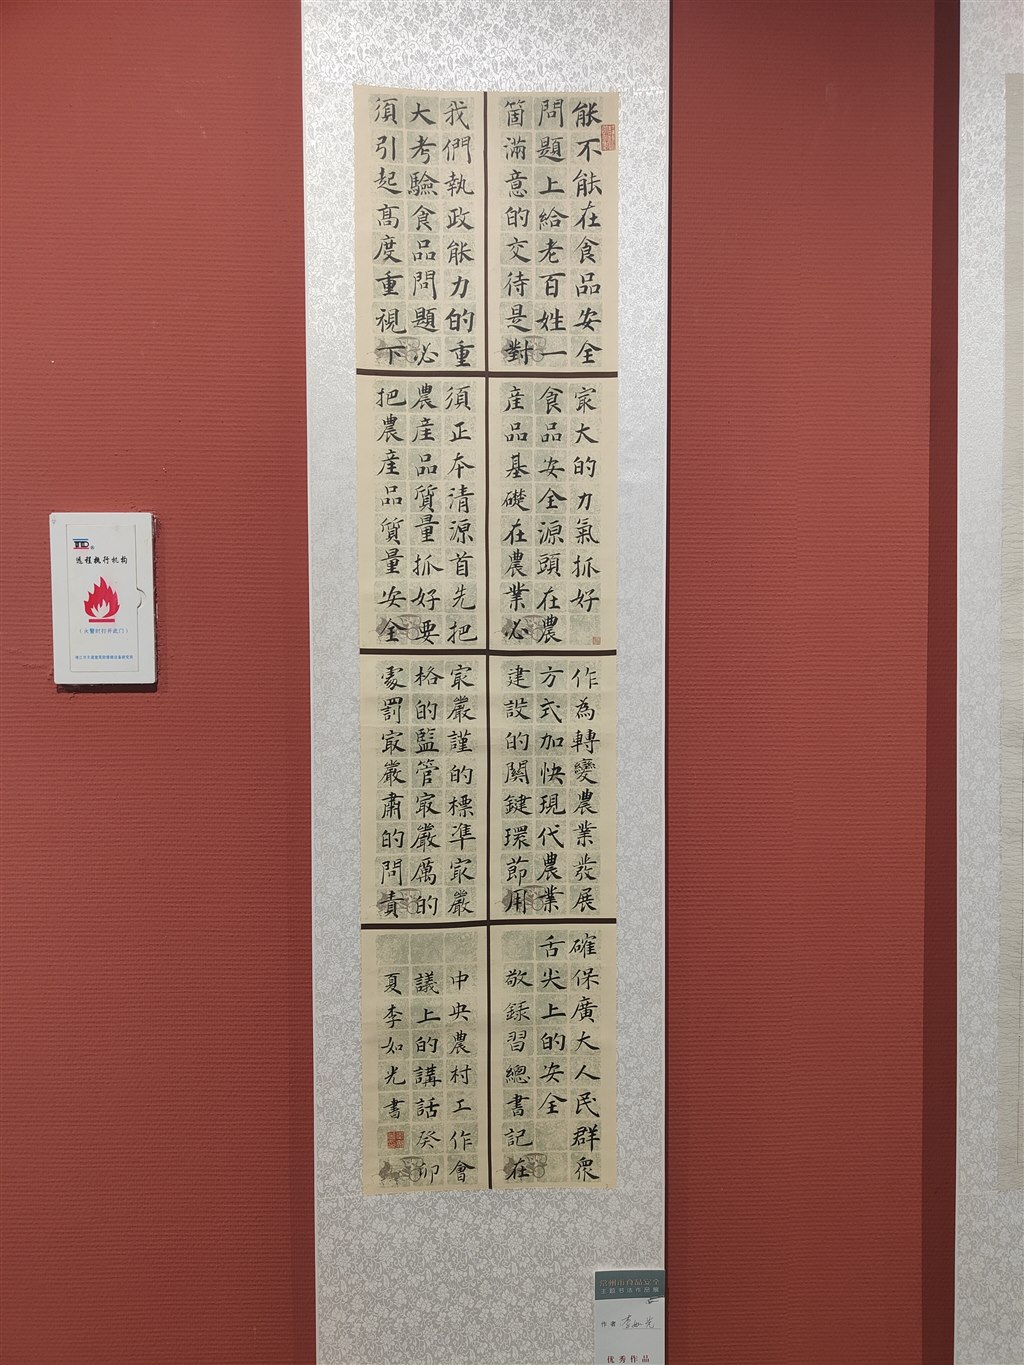 能不能在食品安全
問題上給老百姓一
箇滿意的交待是對
我們執政能力的重
大考驗食品問題必
須引起高度重視下
㝡大的力氣抓好
食品安全源頭在農
産品基礎在農業必
須正本清源首先把
農産品質量抓好要
把農産品質量安全
作為轉變農業發展
方式加快現代農業
建設的關鍵環節用
㝡嚴謹的標準㝡嚴
格的監管㝡嚴厲的
處罰㝡嚴肅的問責
確保廣大人民群眾
舌尖上的安全
敬録習總書記在
中央農村工作會
議上的講話癸卯
夏李如光書
远程执行机构
（火警时打开此门）
常州市食品安全
主题书法作品展
作者 李如光
优秀作品